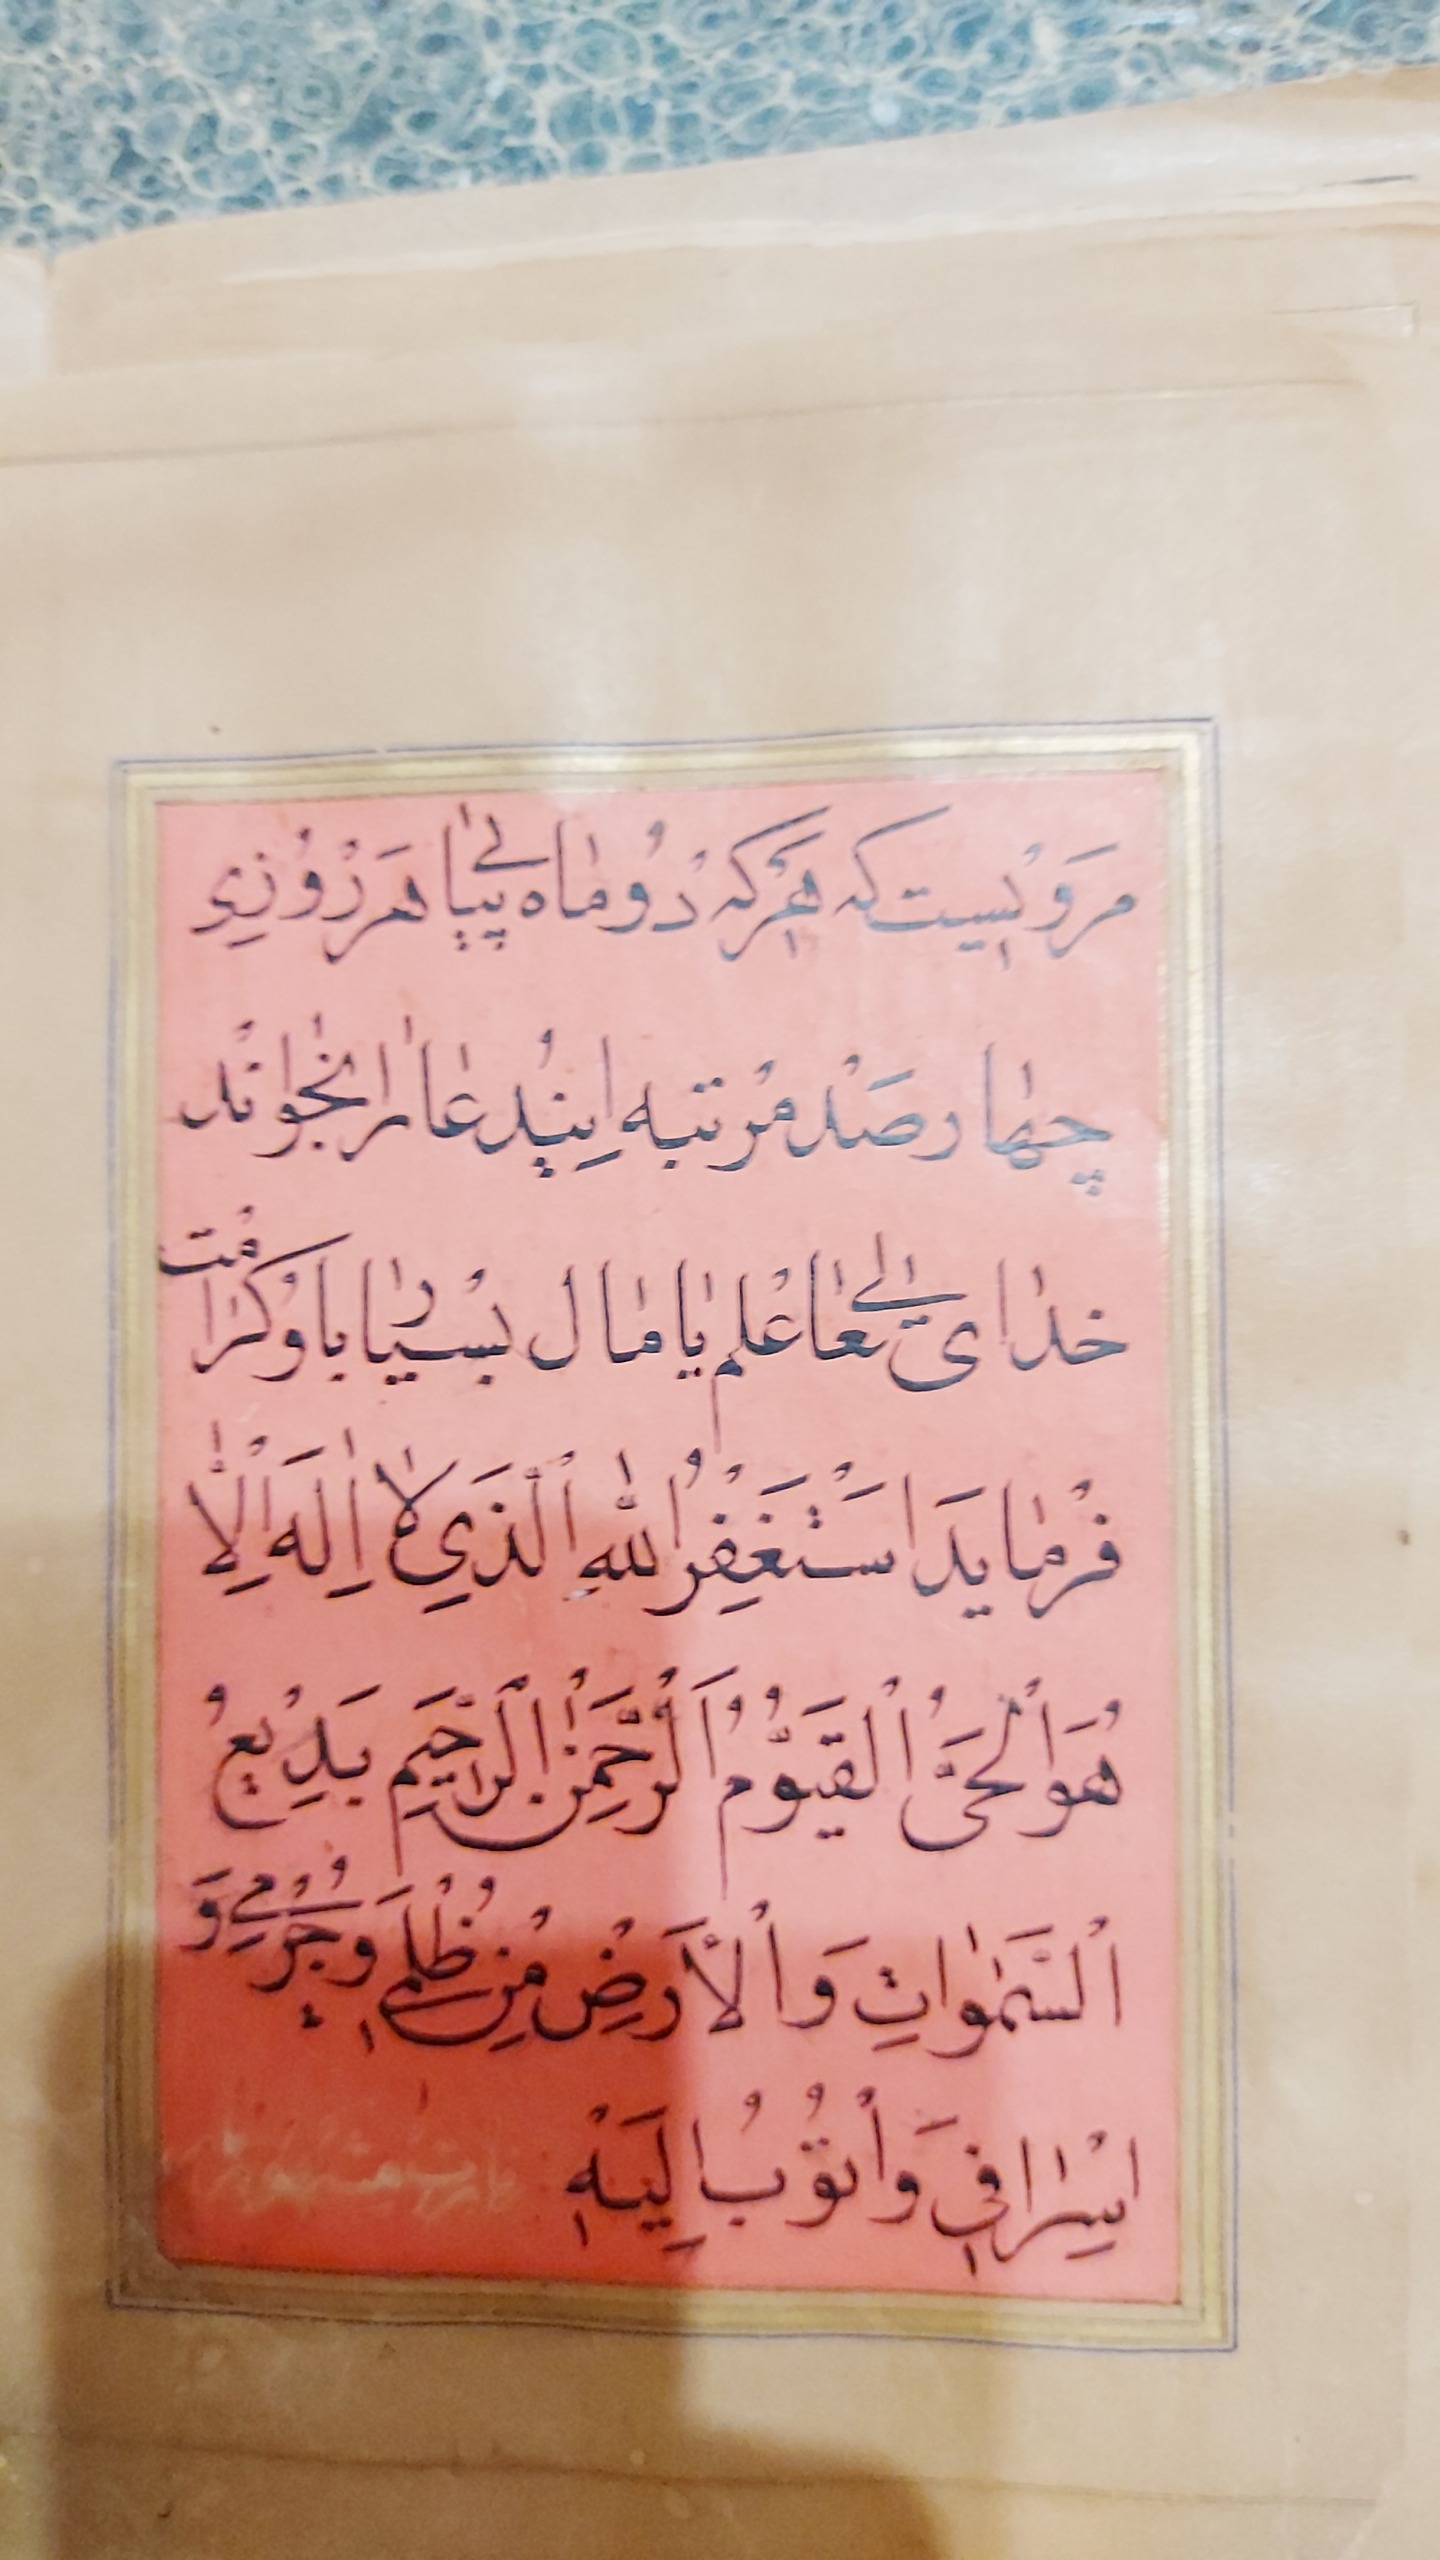 مَرویست که هَر که دُو ماه پَیٰاپی هَر رُوزی
چهٰار صَدْ مَرتبه این دُعا را بخوٰانَد
خدٰای تعٰالیٰ عِلم یٰا مٰال بسیٰار باو کَرٰامَت
فَرمٰاید اَسْتَغْفِرُ اللهَ ٱلَّذَی لاٰ اِلٰهَ اِلاّٰ
هُوَ الْحَیُّ الْقَیُّومُ اَلرَّحْمٰنُ الرَّحیمُ بَدیعُ
السَّمٰوٰاتِ وَالْاَرضِ مِنْ ظُلْمی وَ جُرْمی وَ
اِسْرٰافی وَ اَتُوبُ اِلَیْهِ